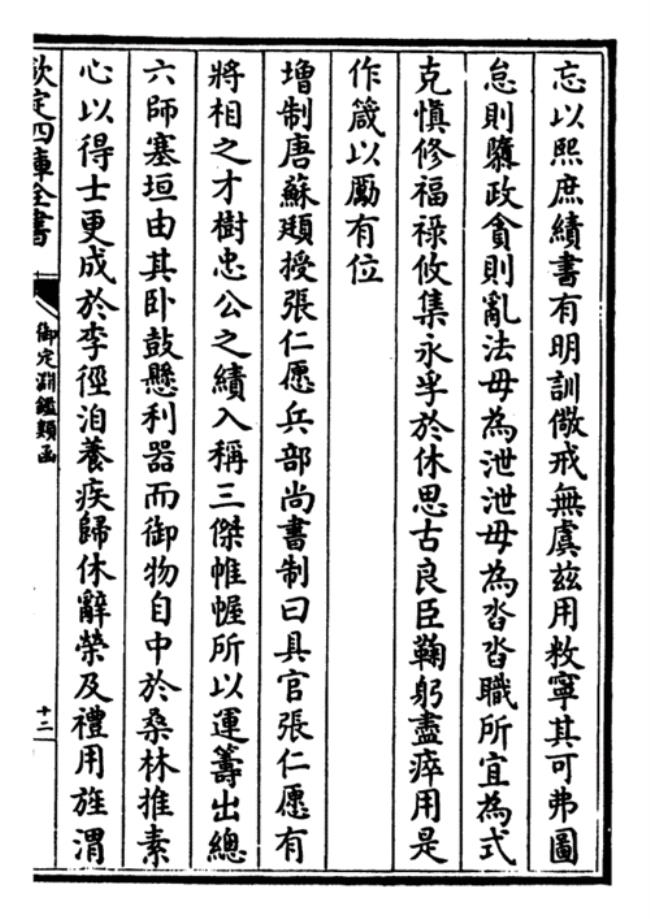 忘以熙庶績書有明訓儆戒無虞茲用敉寧其可弗圖
怠則隳政貪則亂法毋為泄泄毋為沓沓職所宜為式
克慎修福祿攸集永孚於休思古良臣鞠躬盡瘁用是
作箴以勵有位
增制唐蘇頲授張仁愿兵部尚書制曰具官張仁愿有
將相之才樹忠公之績入稱三傑帷幄所以運籌出總
六師塞垣由其卧鼓懸利器而御物自中於桑林推素
心以得士更成於李徑洎養疾歸休辭榮及禮用旌渭
欽定四庫全書
御定淵鑑類函
十二